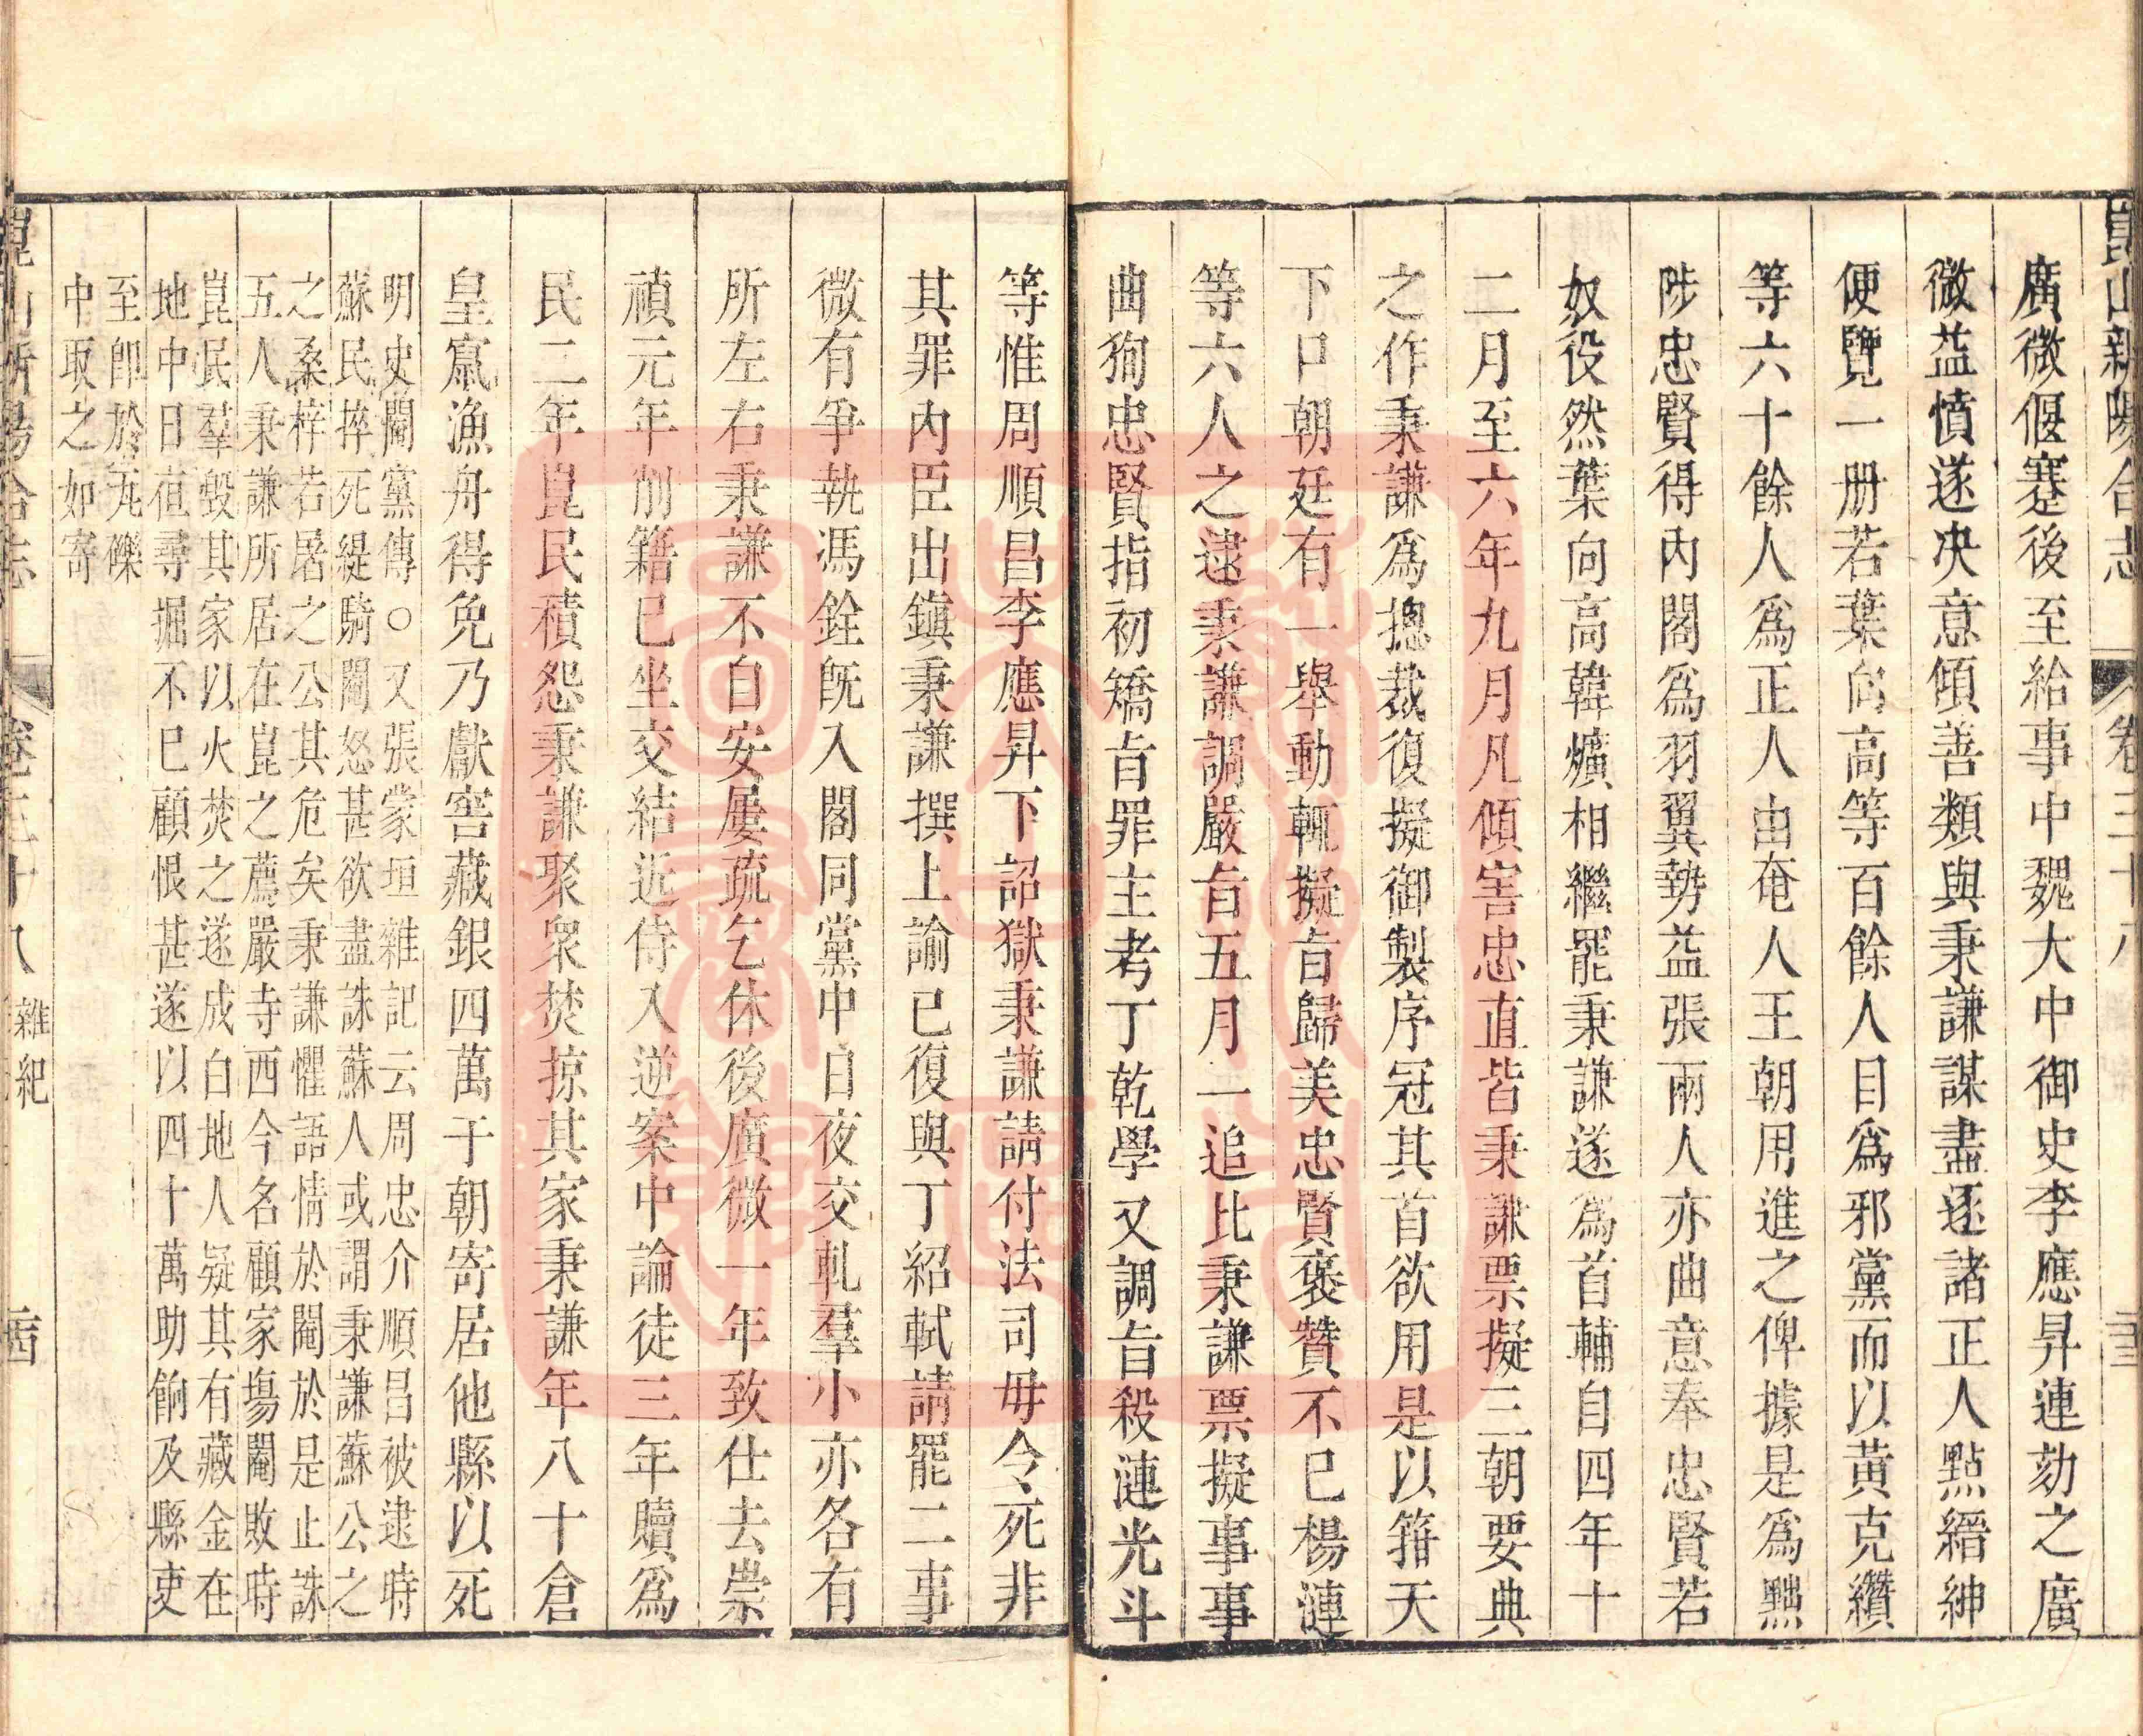 崑山新陽合志
卷三十八
廣微偃蹇後至給事中魏大中御史李應昇連劾之廣
微益憤遂決意傾善類與秉謙謀盡逐諸正人點縉紳
便覽一册若葉向高等百餘人目爲邪黨而以黃克纘
等六十餘人爲正人由奄人王朝用進之俾據是爲黜
陟忠賢得內閣爲羽翼勢益張兩人亦曲意奉忠賢若
奴役然葉向高韓爌相繼罷秉謙遂爲首輔自四年十
二月至六年九月凡傾害忠直皆秉謙票擬三朝要典
之作秉謙爲摠裁復擬御製序冠其首欲用是以箝天
下口朝廷有一舉動輒擬旨歸美忠賢褒贊不已楊漣
等六人之逮秉謙調嚴旨五月一追比秉謙票擬事事
曲狥忠賢指初矯旨罪主考丁乾學又調旨殺漣光斗
等惟周順昌李應昇下詔獄秉謙請付法司毋令死非
其罪內臣出鎭秉謙撰上諭已復與丁紹軾請罷二事
微有爭執馮銓旣入閣同黨中日夜交軋羣小亦各有
所左右秉謙不自安屢疏乞休後廣微一年致仕去崇
禎元年削籍已坐交結近侍入逆案中論徒三年贖爲
民二年崑民積怨秉謙聚衆焚掠其家秉謙年八十倉
皇竄漁舟得免乃獻窖藏銀四萬于朝寄居他縣以死
明史閹黨傳○又張蒙垣雜記云周忠介順昌被逮時
蘇民捽死緹騎閹怒甚欲盡誅蘇人或謂秉謙蘇公之
之桑梓若屠之公其危矣秉謙懼語情於閹於是止誅
五人秉謙所居在崑之薦嚴寺西今名顧家塲閹敗時
崑民羣毀其家以火焚之遂成白地人疑其有藏金在
地中日夜尋掘不已顧恨甚遂以四十萬助餉及縣吏
至卽於瓦礫
中取之如寄
崑山新陽合志
卷三十八
雜紀